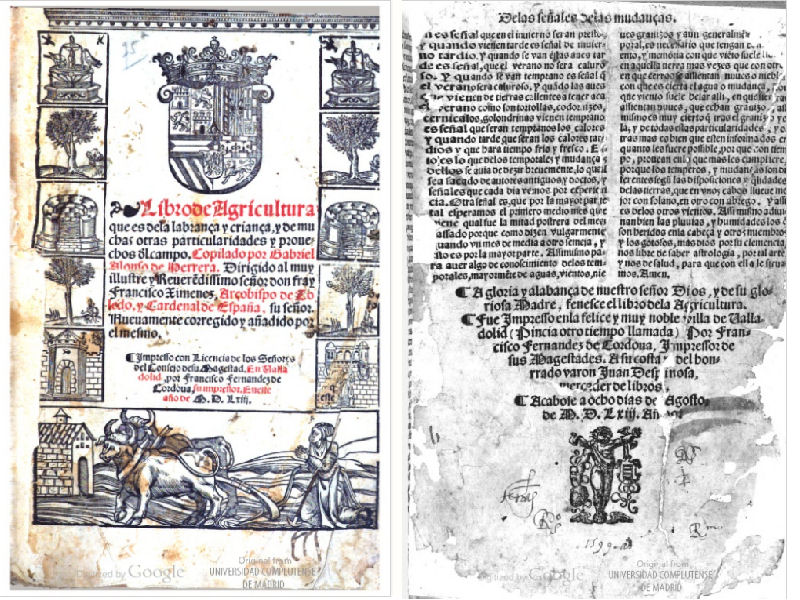 Libro de Agricultura
que es de la labrança y criança, y de mu
chas otras particularidades y proue
chos dl campo. Copilado por Gabriel
Alonso de Herrera. Dirigido al muy
illustre y Reuerēdissimo señor don fray
Francisco Ximenes, Arçobispo de To
ledo, y Cardenal de España, su señor.
Nueuamente corregido y añadido por
el mesmo.
Impresso con Licencia de los Señores
del Consejo de su Magestad. En Valla
dolid, por Francisco Fernandez de
Cordoua, su impressor. En este
año de M. D. Lxiij.
Digitized by Google
Original from
UNIVERSIDAD COMPLUTENSE
DE MADRID
De las señales de las mudanças.
que en el inuierno seran presto
y quando vienen tarde es señal de inuier
no tardio, y quando se van estas aues tar
de es señal, que el verano no sera caluro
so. Y quando se van temprano es señal q̄
el verano sera caluroso, y quādo las aues
q̄ vienen de tierras calientes a tener aca
verano como son tortollas, codornizes,
cernicalos, golondrinas vienen temprano
es señal que seran tempranos los calores
y quando tarde que seran los calores tar
dios y que hara tiempo frio y fresco. E
to es lo que de los temporales y mudanças
dellos se auia de dezir breuemente, lo qual
sea sacado de autores antiguos y doctos, y
señales que cada dia vemos por esperiencia.
Otra señal es, que por la mayor parte
tal esperamos el primero medio mes que
viene qual fue la mitad postrera del mes
passado porque como dizen vulgarmente
quando vn mes de media a otro semeja, y
esto es por la mayor parte. Assi mismo pa
ra auer algo de conoscimiento de los tem
porales, mayormente de aguas, vientos, nie
ues granizos y aun generalmente
poral, es necesario que tengan
ento, y memoria con que viento suele
en aquella tierra mas vezes que con otro
en que cerros se assientan nuues o niebla
con que es cierta el agua o mudança,
que viento suele helar alli, en que
assientan nuues, que echan granizo,
mismo es muy cierto q̄ tras el granizo ye
la, y de todas estas particularidades, y o
tras mas cobren que esten informados en
quanto les fuere possible, por que con tiem
po, prouean en lo que mas les cumpliere,
porque los temperos, y mudanças son di
ferentes segū las disposiciones y q̄lidades
de las tierras, que en vnos cabos llueue me
jor con solano, en otro con abrego, y assi
es de los otros vientos. Assi mismo adiui
nan bien las pluuias, y humidades los que
son heridos en la cabeça y otros miembros
y los gotosos, mas dios por su clemencia,
nos libre de saber astrologia, por tal arte
y nos de salud, para que con ella le siruamos.
Amen.
A gloria y alabança de nuestro señor Dios, y de su glo
riosa Madre, fenesce el libro de la Agricultura.
Fue Impresso en la felice y muy noble villa de Valla
dolid (Pincia otro tiempo llamada) Por Fran
cisco Fernandez de Cordoua, Impressor de
sus Magestades. A su costa y del hon
rrado varon Juan Despinosa,
mercader de libros.
Acabose a ocho dias de Agosto,
de M. D. Lxiij. Años
1599
Digitized by Google
Original from
UNIVERSIDAD COMPLUTENSE
DE MADRID